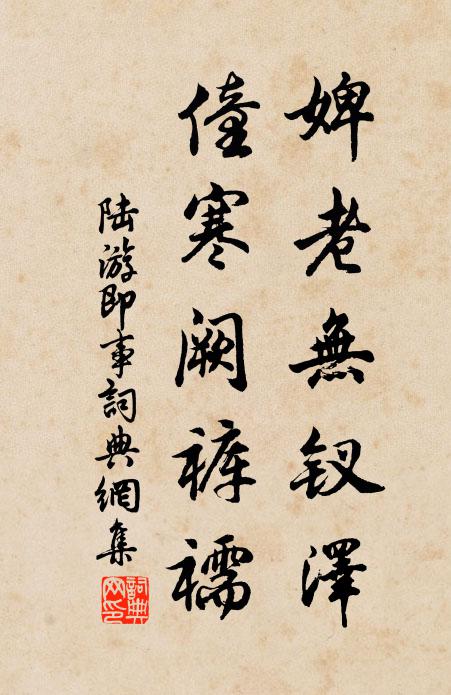 婢老無釵澤
僮寒闕裤襦
陆游即事詞典網集
詞典网印